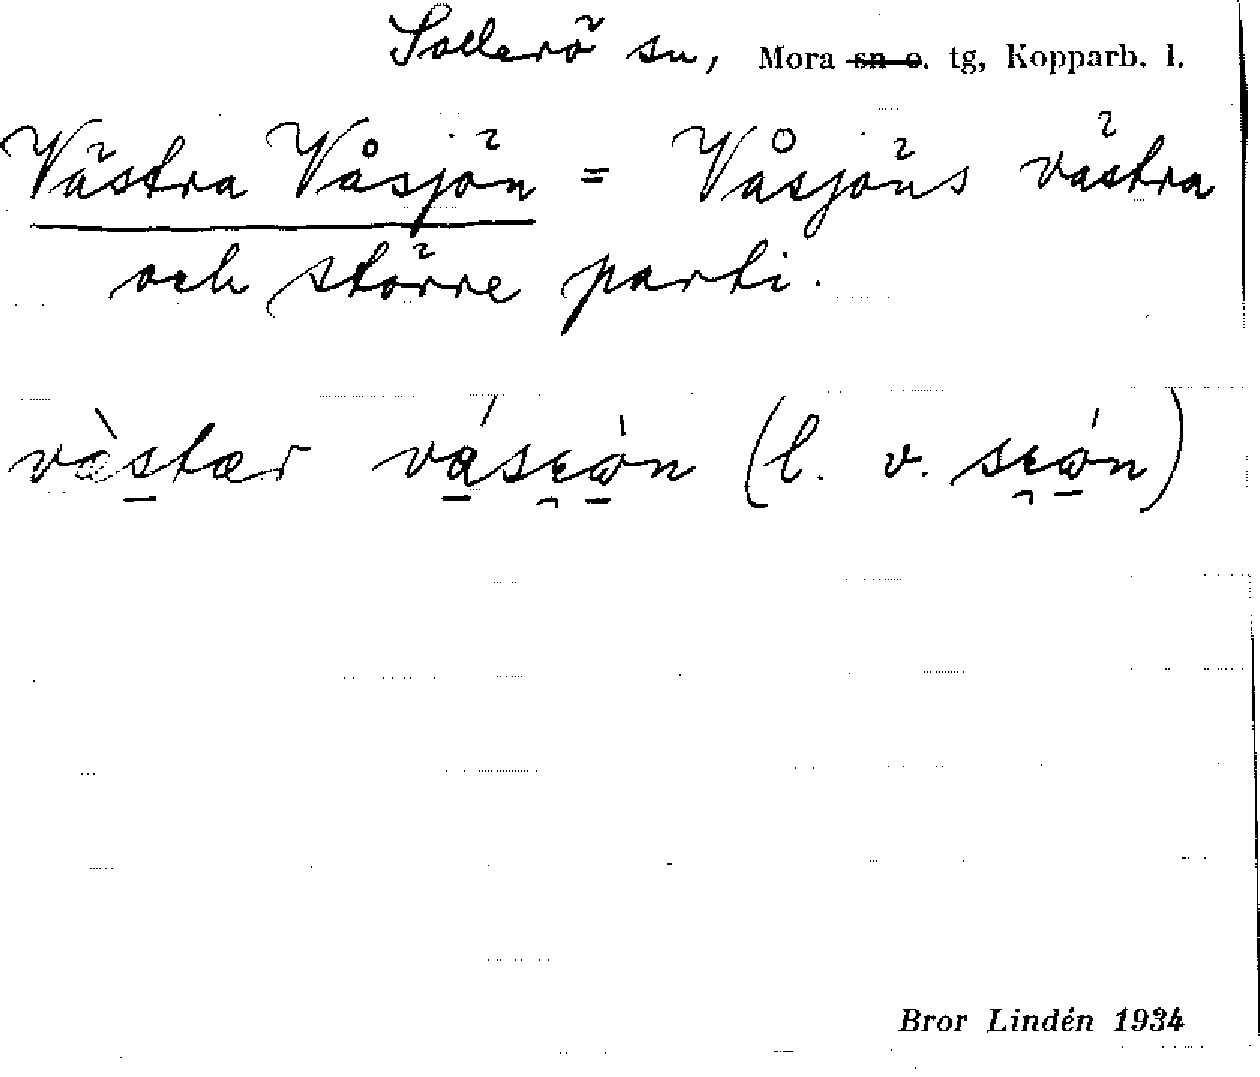 Sollerö sn, Mora sn o. tg, Kopparb. l.
Västra Våsjön = Våsjöns västra
och större parti.
(l. v.
Bror Lindén 1934